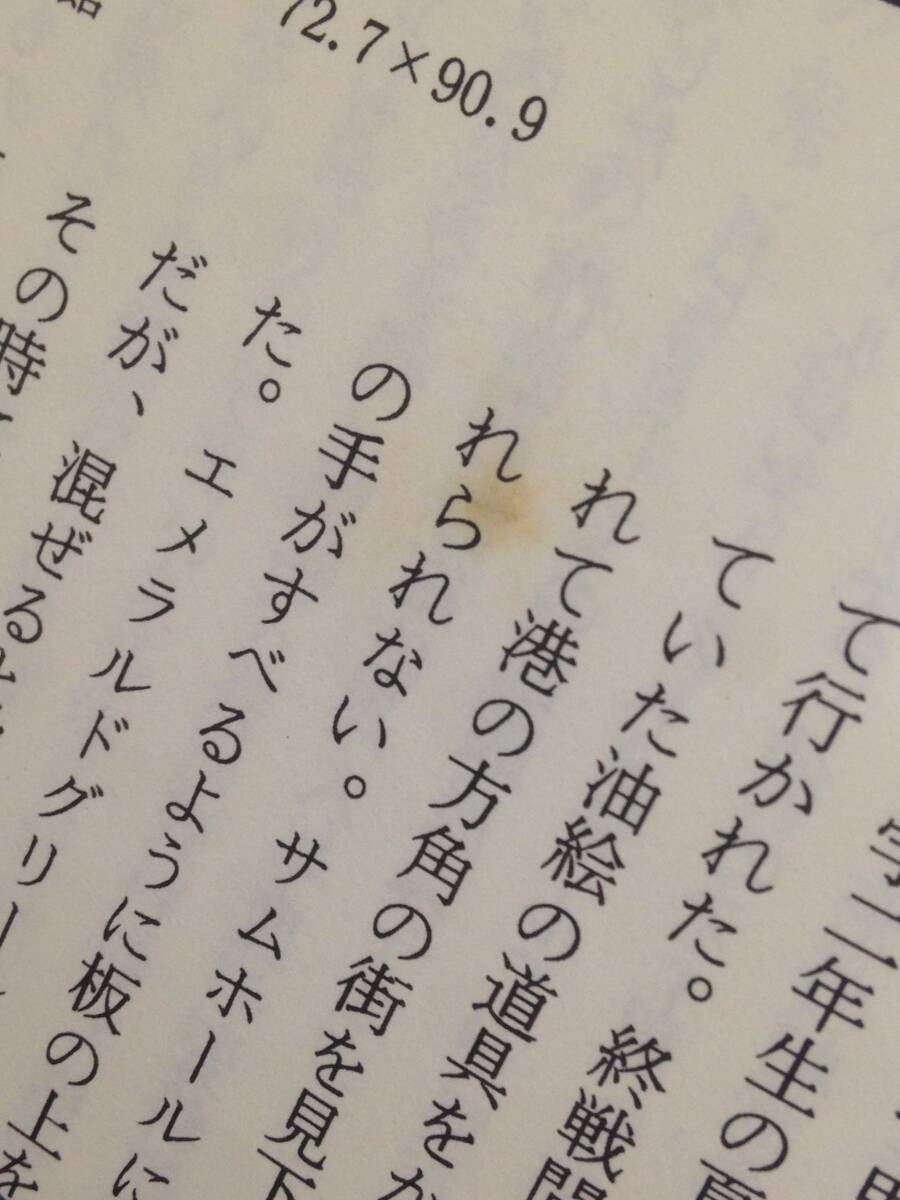 72.7×90.9
二年生の
て行かれた。終戦
ていた油絵の道具を
れて港の方角の街を見下
れられない。サムホールに
の手がすべるように板の上を
た。エメラルドグリー
だが、混ぜる
その時